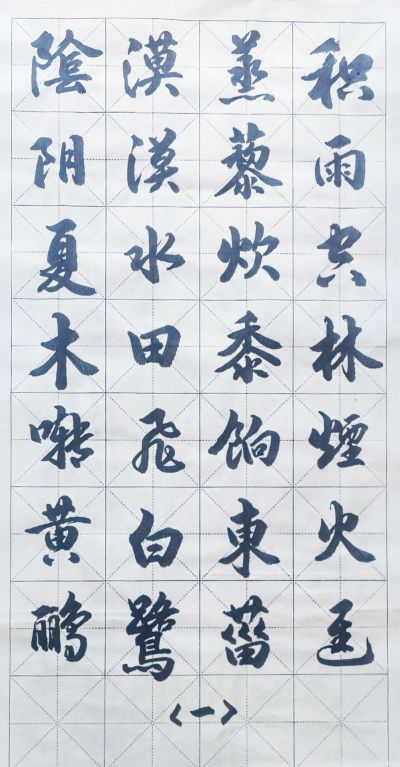 积雨空林煙火迟
蒸藜炊黍餉東菑
漠漠水田飛白鷺
陰阴夏木囀黄鹂
<一>